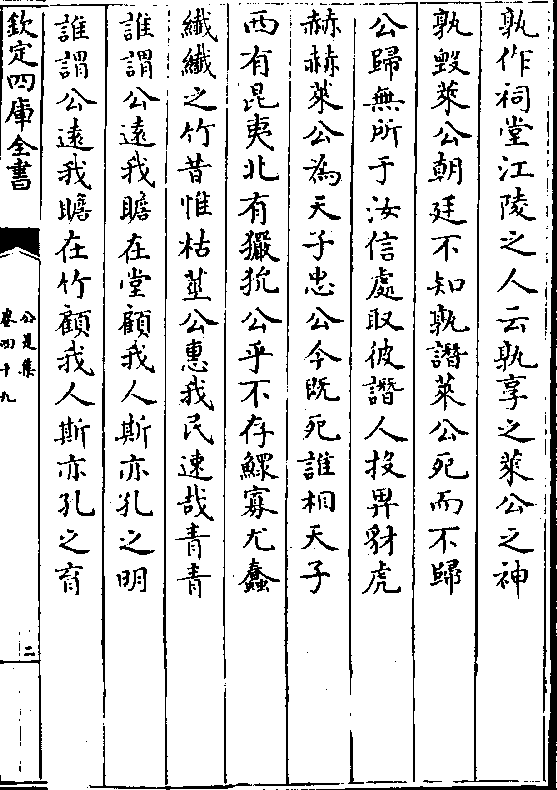 孰作祠堂江陵之人云孰享之萊公之神
孰毀萊公朝廷不知孰譖萊公死而不歸
公歸無所于汝信處取彼譖人投畀豺虎
赫赫萊公為天子忠公今既死誰相天子
西有昆夷北有玁狁公乎不存鰥寡尤蠢
纖纖之竹昔惟枯莖公惠我民速哉青青
誰謂公遠我瞻在堂顧我人斯亦孔之明
誰謂公遠我瞻在竹顧我人斯亦孔之育
欽定四庫全書
公是集
卷四十九
二